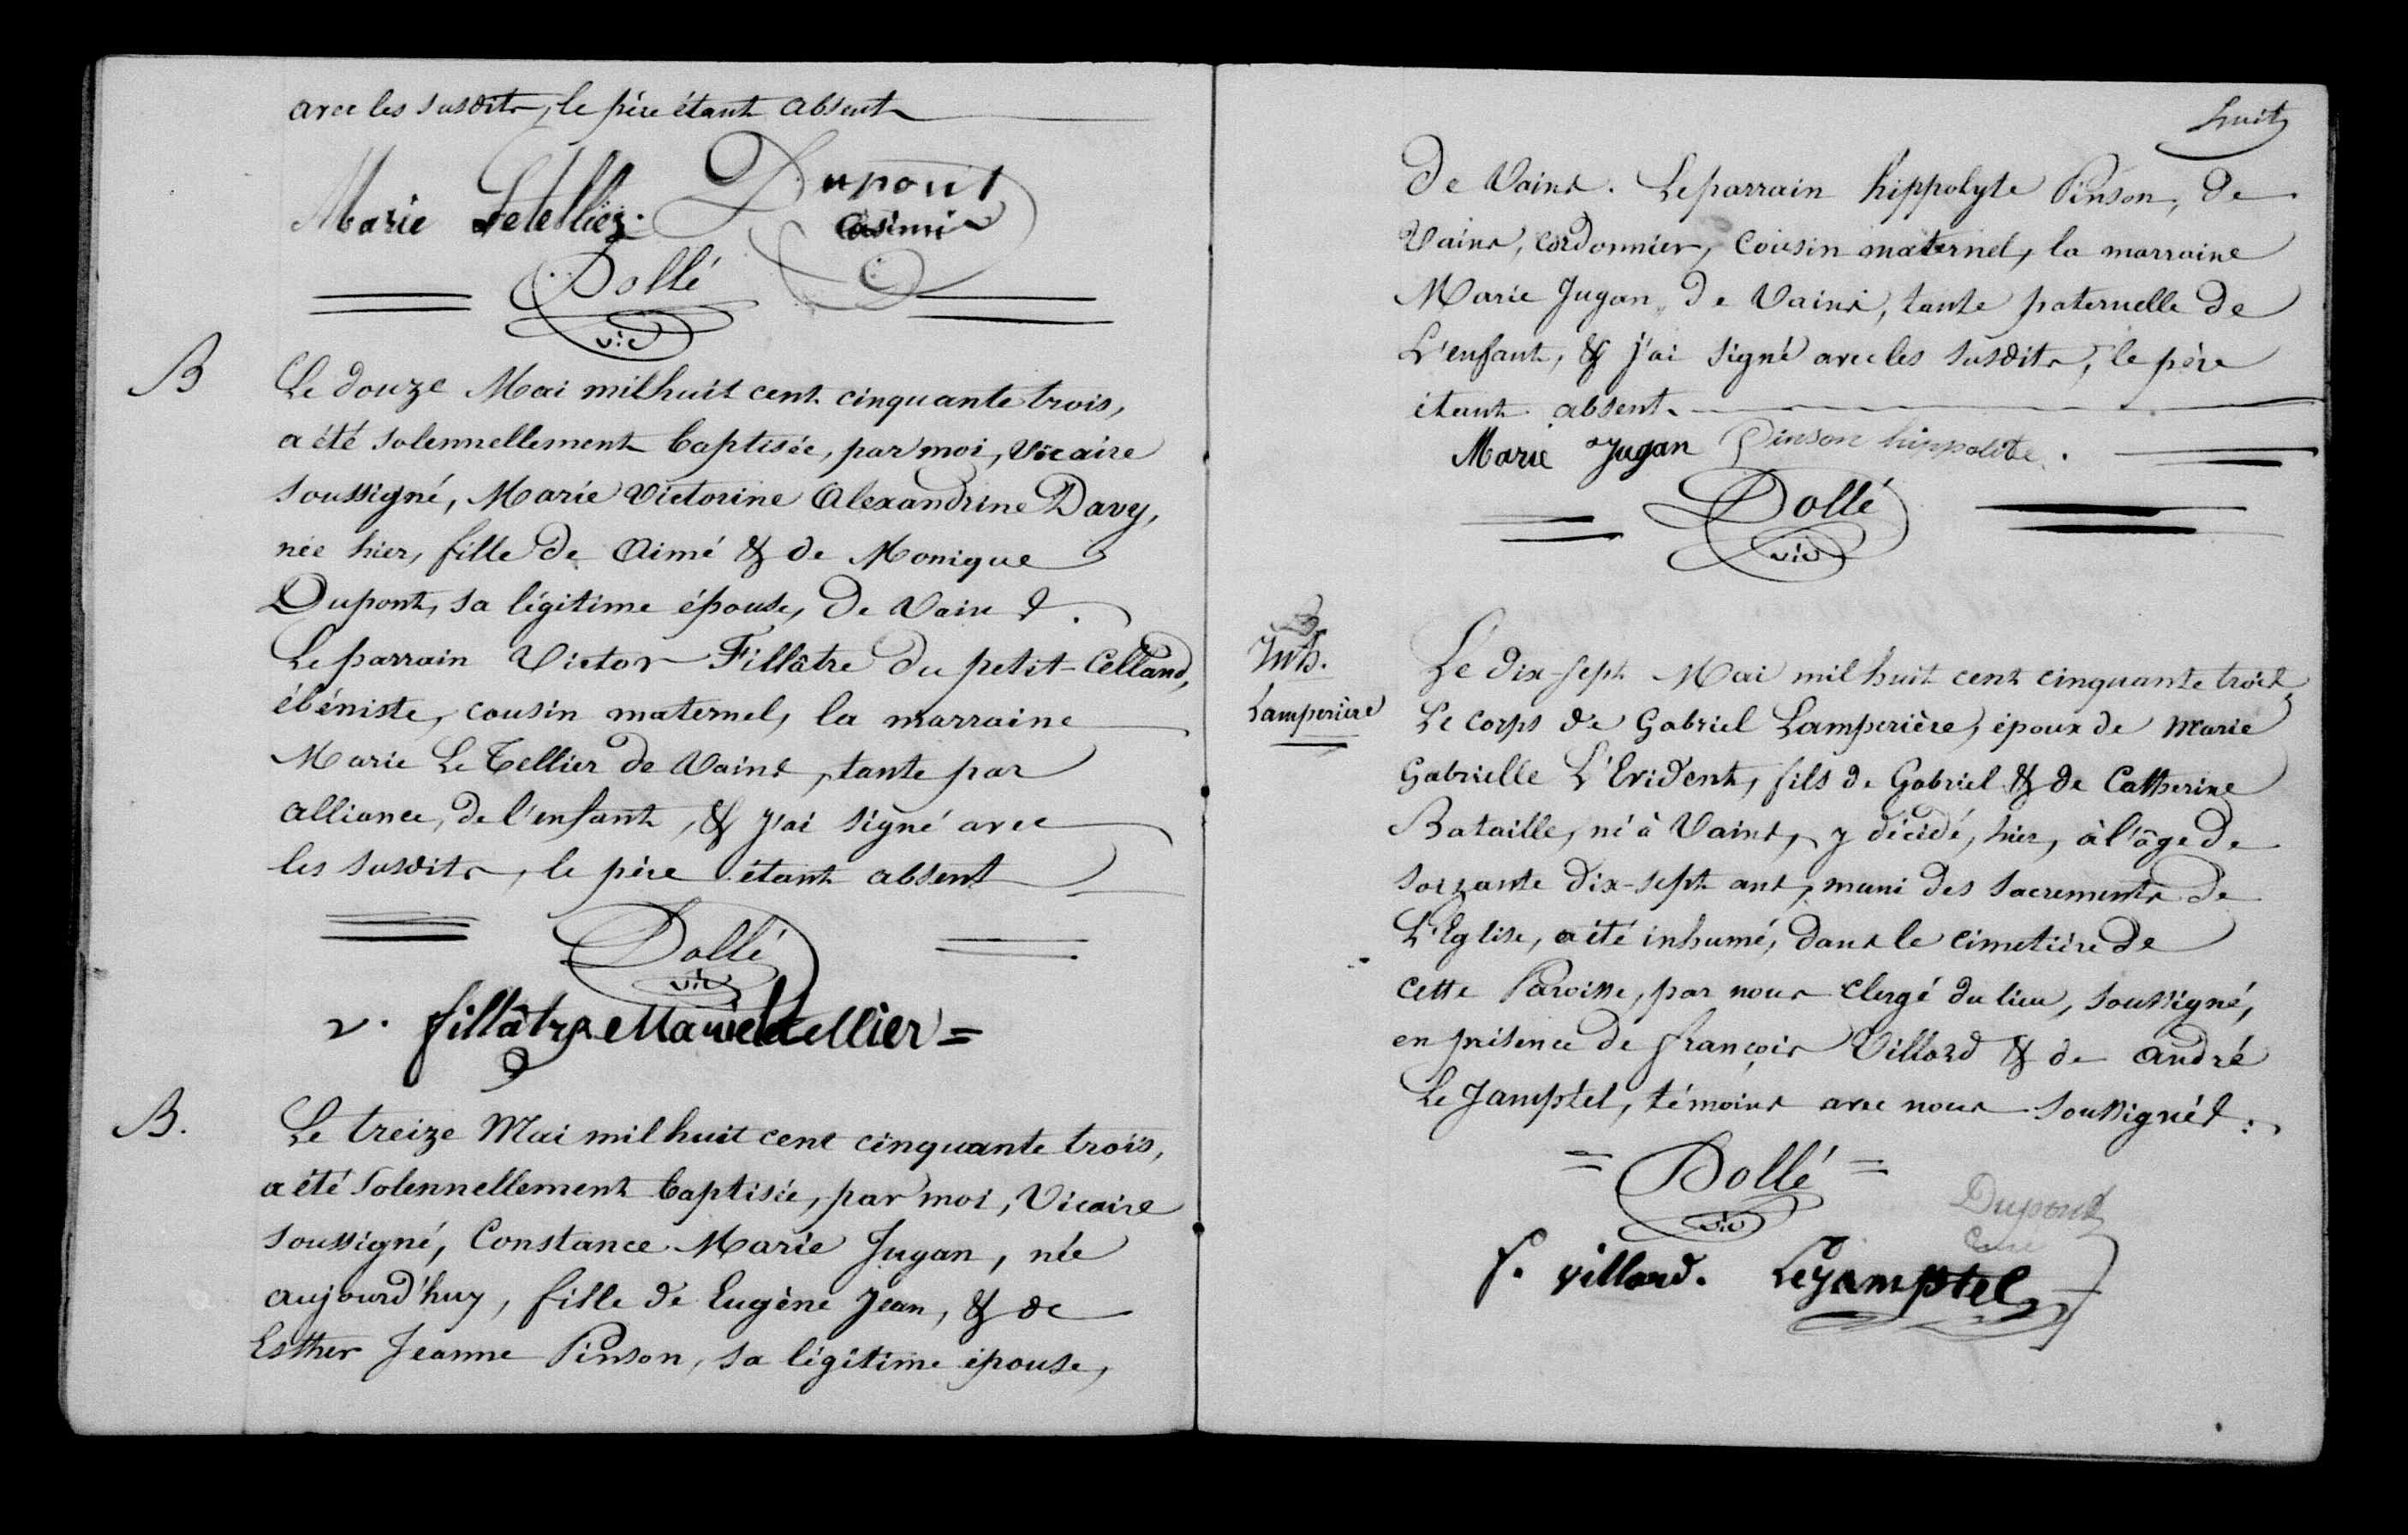 avec les susdits, le père étant absent
Marie Letellier. Dupont
Casimir
Dollé
vic
B
Le douze Mai mil huit cent cinquante trois,
a été solennellement baptisée, par moi, Vicaire
soussigné, Marie Victorine Alexandrine Davy,
née hier, fille de Aimé & de Monique
Dupont, sa légitime épouse, de Vains.
Le parrain Victor Fillâtre du petit-Celland,
ébéniste, cousin maternel, la marraine
Marie Le Tellier de Vains, tante par
alliance, de l'enfant, & j'ai signé avec
les susdits, le père étant absent
Dollé
vic
v. fillâtre Marie letellier =
B.
Le treize Mai mil huit cent cinquante trois,
a été solennellement baptisée, par moi, Vicaire
soussigné, Constance Marie Jugan, née
aujourd'huy, fille de Eugène Jean, & de
Esther Jeanne Pinson, sa légitime épouse,
huit
de Vains. Le parrain hippolyte Pinson, de
Vains, cordonnier, cousin maternel, la marraine
Marie Jugan, de Vains, tante paternelle de
L'enfant, & j'ai signé avec les susdits, le père
étant absent.
Marie Jugan Pinson hippolite.
Dollé
vic
Inh.
Lamperière
Le dix-sept Mai mil huit cent cinquante trois,
Le corps de Gabriel Lamperière, époux de Marie
Gabrielle L'Evident, fils de Gabriel & de Catherine
Bataille, né à Vains, y décédé, hier, à l'âge de
soizante dix-sept ans, muni des sacrements de
L'Eglise, a été inhumé, dans le cimetière de
cette Paroisse, par nous Clergé du lieu, soussigné,
en présence de françois Villard & de andré
Le Jamptel, témoins avec nous soussignés.
= Dollé =
vic
Dupont
Curé
f. villard. Lejamptel